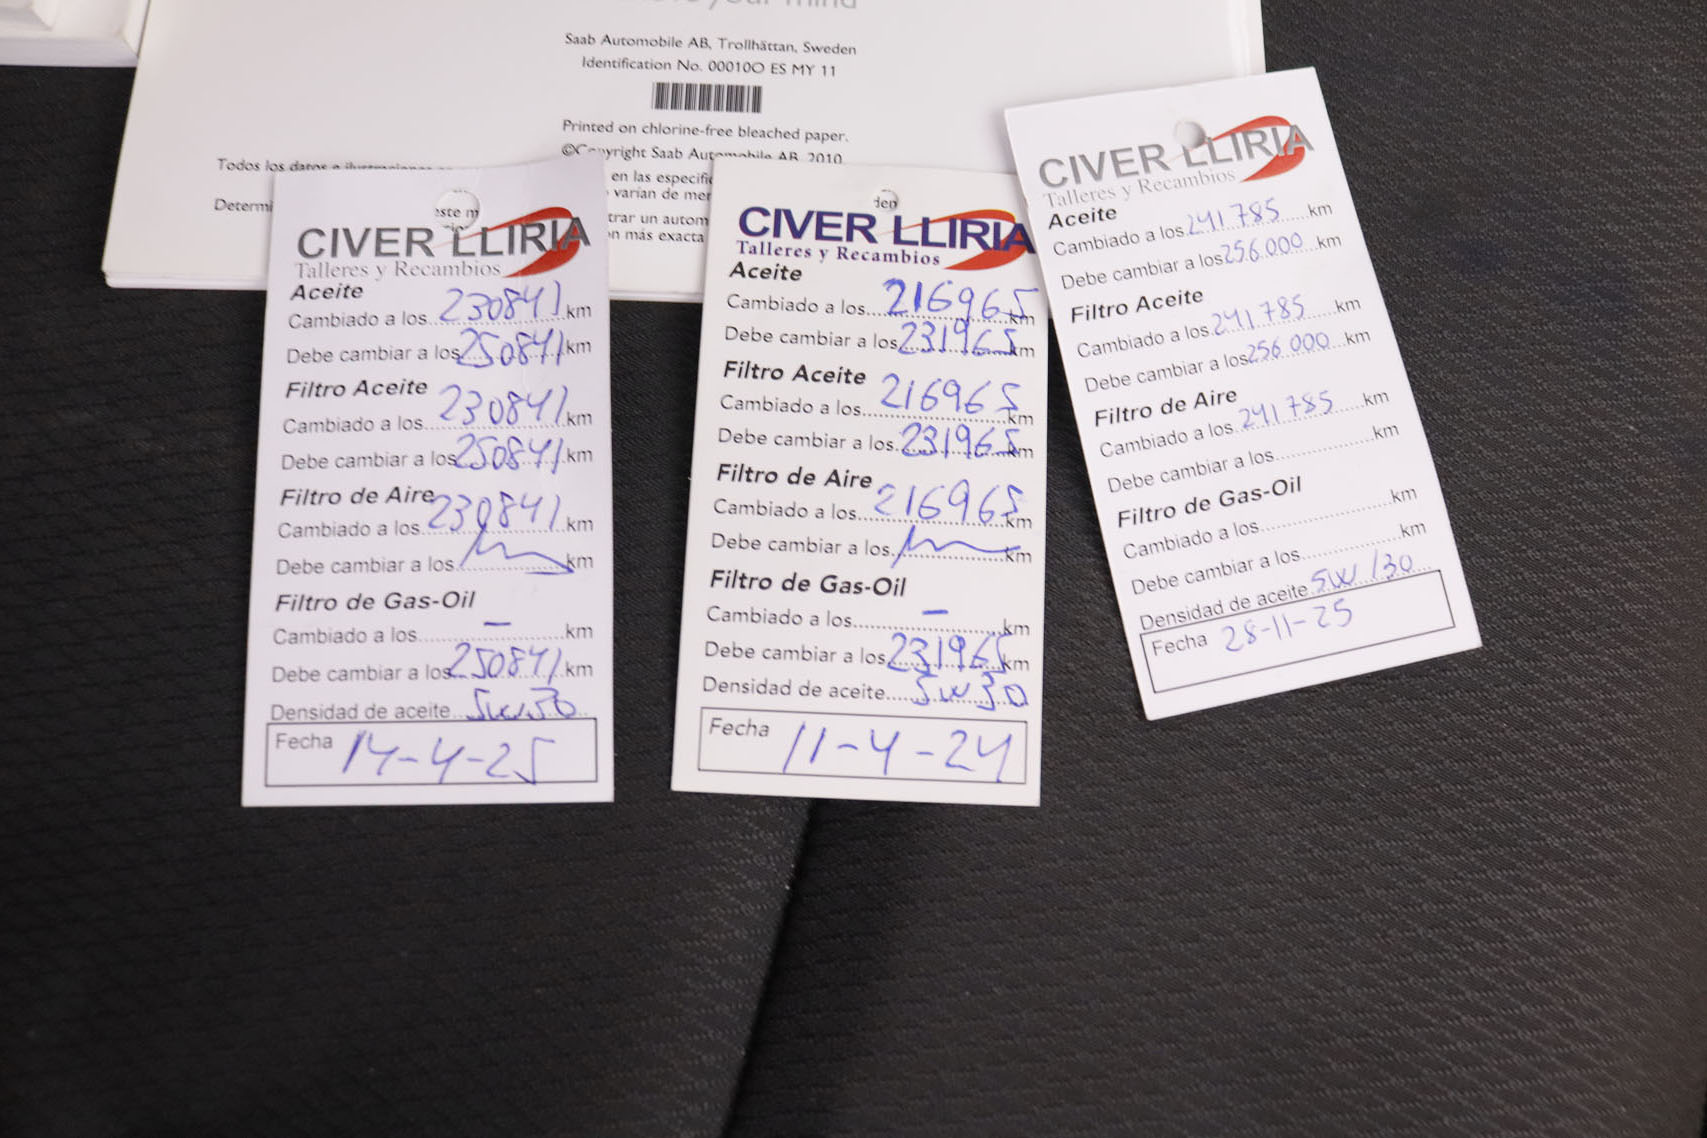 your mind
Saab Automobile AB, Trollhättan, Sweden
Identification No. 00010O ES MY 11
Printed on chlorine-free bleached paper.
©Copyright Saab Automobile AB 2010
Todos los datos e ilustraciones
en las especific
varían de mer
Determi
trar un autom
ón más exacta
este m
CIVER LLIRIA
Talleres y Recambios
Aceite
Cambiado a los 230841 km
Debe cambiar a los 250841 km
Filtro Aceite
Cambiado a los 230841 km
Debe cambiar a los 250841 km
Filtro de Aire
Cambiado a los 230841 km
Debe cambiar a los km
Filtro de Gas-Oil
Cambiado a los — km
Debe cambiar a los 250841 km
Densidad de aceite 5w30
Fecha 14-4-25
den
CIVER LLIRIA
Talleres y Recambios
Aceite
Cambiado a los 216965 km
Debe cambiar a los 231965 km
Filtro Aceite
Cambiado a los 216965 km
Debe cambiar a los 231965 km
Filtro de Aire
Cambiado a los 216965 km
Debe cambiar a los km
Filtro de Gas-Oil
Cambiado a los — km
Debe cambiar a los 231965 km
Densidad de aceite 5w30
Fecha 11-4-24
CIVER LLIRIA
Talleres y Recambios
Aceite
Cambiado a los 241785 km
Debe cambiar a los 256.000 km
Filtro Aceite
Cambiado a los 241785 km
Debe cambiar a los 256 000 km
Filtro de Aire
Cambiado a los 241785 km
Debe cambiar a los km
Filtro de Gas-Oil
Cambiado a los km
Debe cambiar a los km
Densidad de aceite 5W/30
Fecha 28-11-25